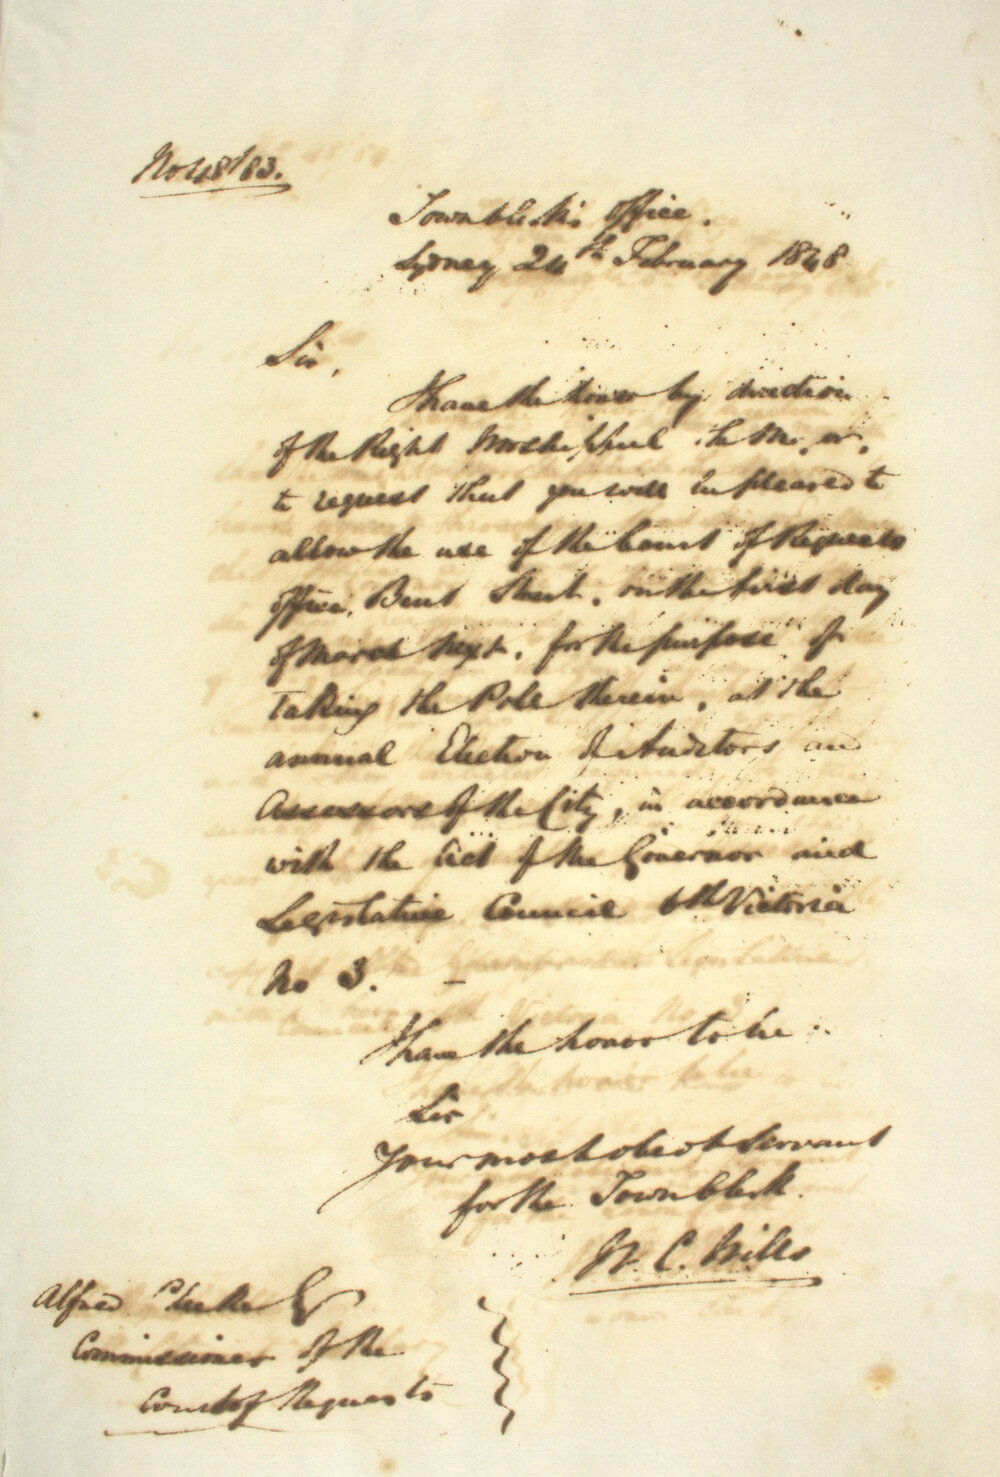 No 48/83.
Town Clerk's Office.
Sydney 24th February 1848
Sir,
I have the honor by direction
of the Right Worshipful the Mayor,
to request that you will be pleased to
allow the use of the Court of Requests
Office, Bent Street, on the first day
of March next, for the purpose of
taking the Pole therein, at the
annual Election of Auditors and
Assessors of the City, in accordance
with the Act of the Governor and
Legislative Council 6th Victoria
No 3. –
I have the honor to be
Sir
Your most obedt Servant
for the Town Clerk.
W. C. Wills
Alfred Cheeke Esq
Commissioner of the
Court of Requests